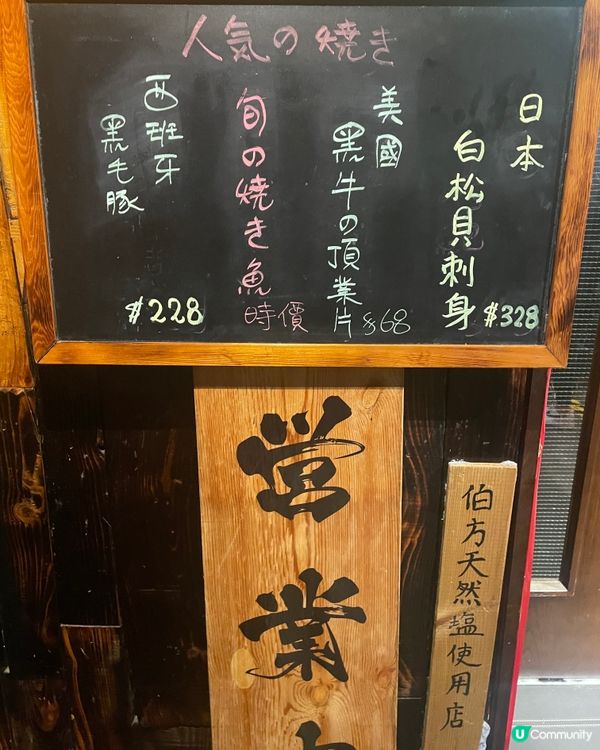 人気の焼き
日本
白松貝刺身
$328
美國
黑牛の頂業片
$68
旬の焼き魚
時價
西班牙
黑毛豚
$228
営業中
伯方天然塩使用店
U Community